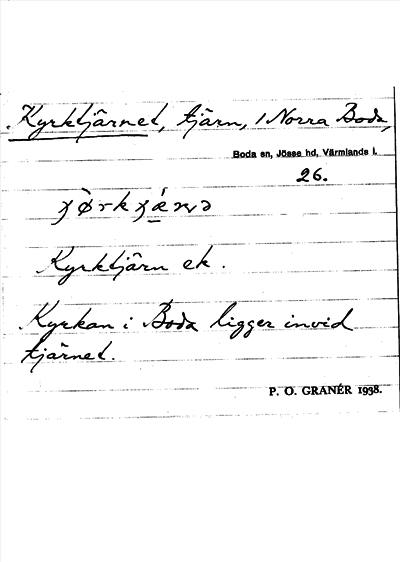 Kyrktjärnet, tjärn, i Norra Boda,
Boda sn, Jösse hd, Värmlands l.
26.
Kyrktjärn ek.
Kyrkan i Boda ligger invid
tjärnet.
P. O. GRANÉR 1938.